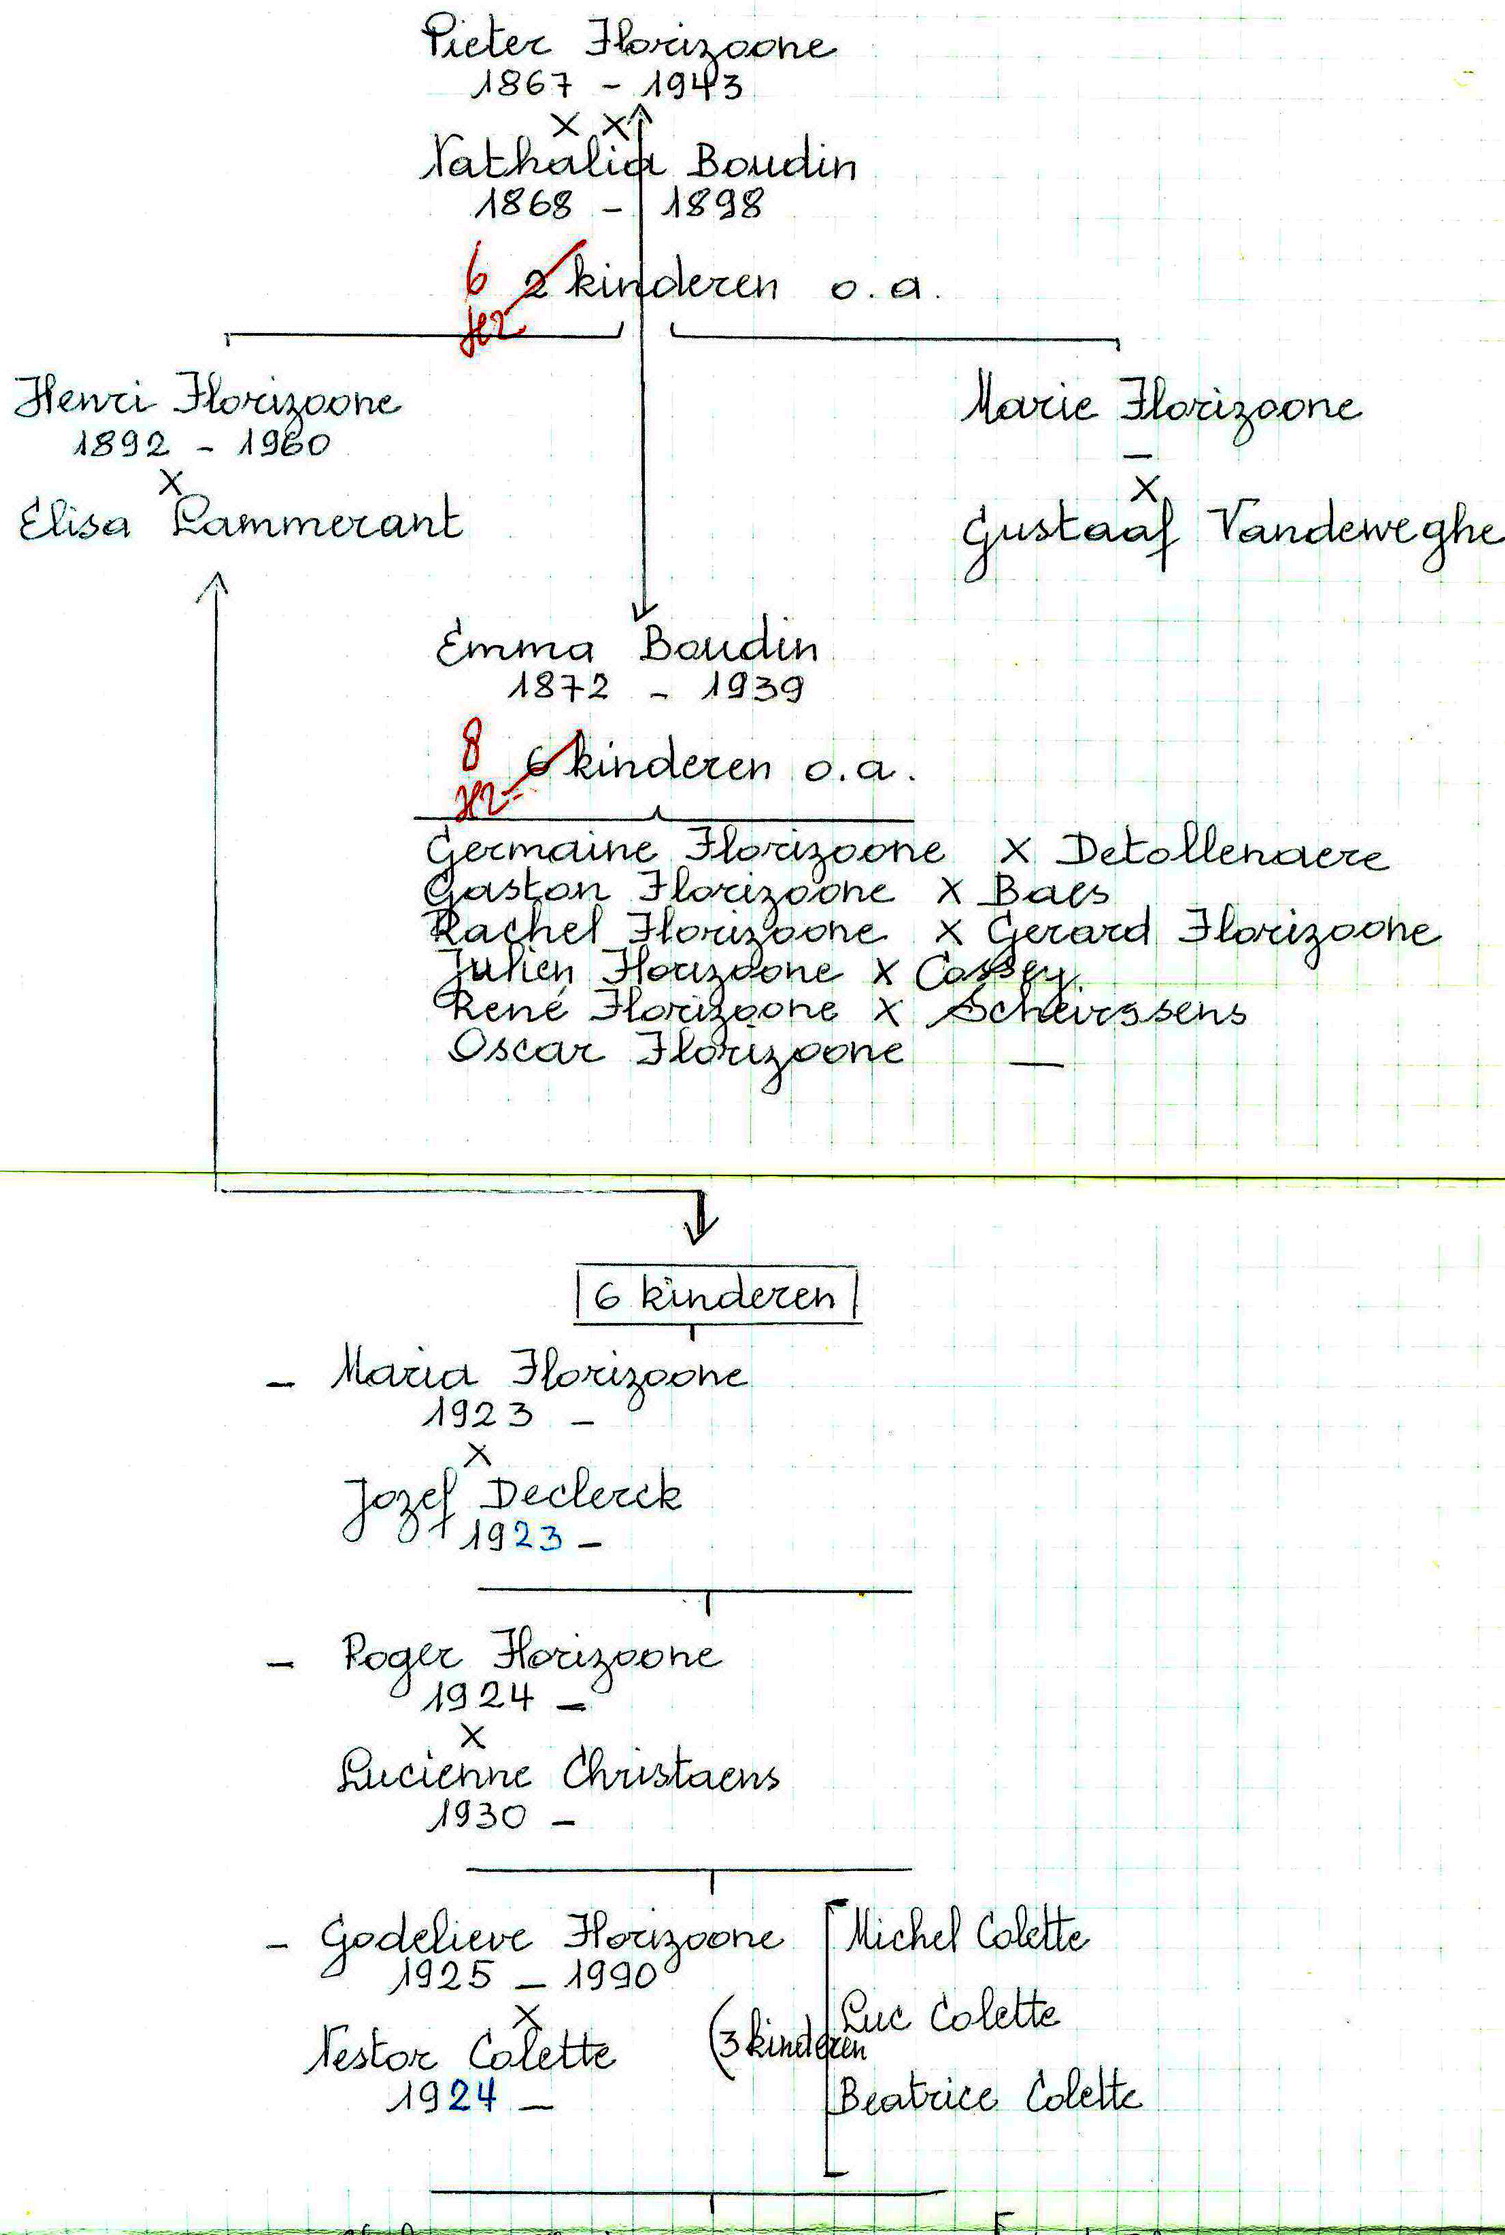 Pieter Florizoone
1867 - 1943
X X
Nathalia Boudin
1868 - 1898
6 2 kinderen o.a.
Henri Florizoone
1892 - 1960
X
Elisa Lammerant
Marie Florizoone
-
X
Gustaaf Vandeweghe
Emma Boudin
1872 - 1939
8 6 kinderen o.a.
Germaine Florizoone X Detollenaere
Gaston Florizoone X Baes
Rachel Florizoone X Gerard Florizoone
Julien Florizoone X Cossey
René Florizoone X Scheirssens
Oscar Florizoone —
6 kinderen
- Maria Florizoone
1923 -
X
Jozef Declerck
1923 -
- Roger Florizoone
1924 -
X
Lucienne Christaens
1930 -
- Godelieve Florizoone
1925 - 1990
X
Nestor Colette
1924 -
(3 kinderen
Michel Colette
Luc Colette
Beatrice Colette